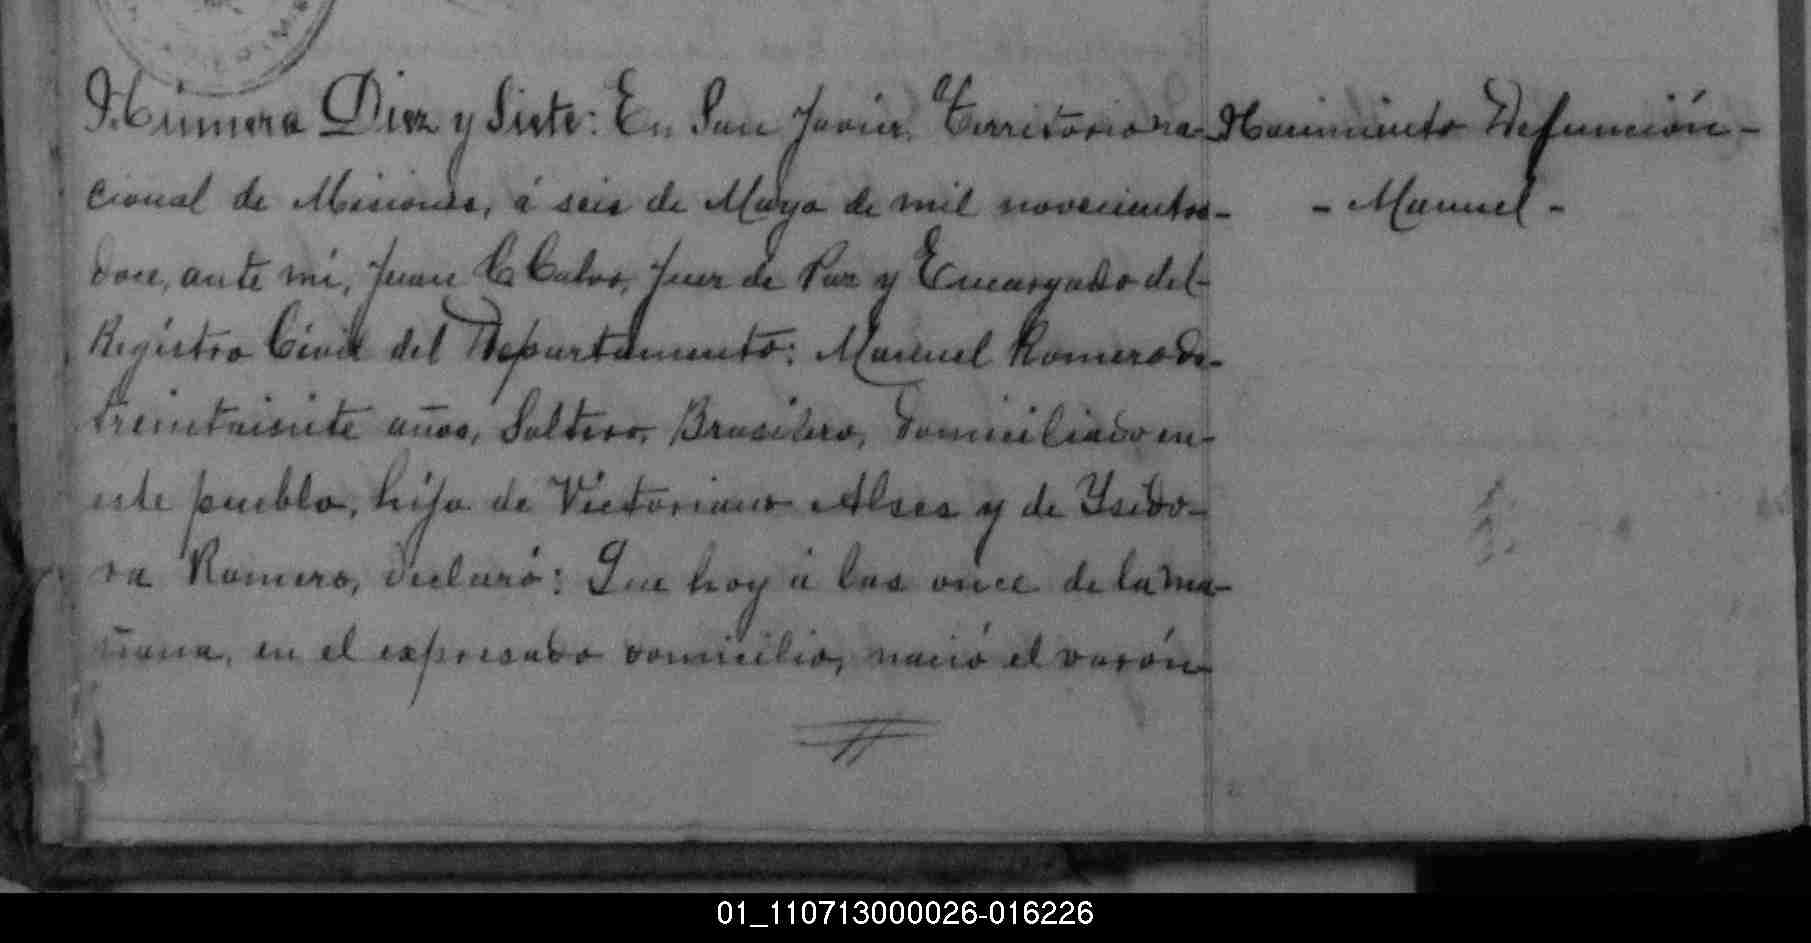 Número Diez y Siete: En San Javier, Territorio na-
cional de Misiones, á seis de Mayo de mil novecientos-
doce, ante mí, Juan C Calvo, Juez de Paz y Encargado del-
Registro Civil del Departamento: Manuel Romero de-
treintaisiete años, Soltero, Brasilero, domiciliado en-
este pueblo, hijo de Victoriano Alses y de Ysido-
ra Romero, declaró: Que hoy á las once de la ma-
ñana, en el expresado domicilio, nació el varón
Nacimiento Defunción-
- Manuel -
01_110713000026-016226